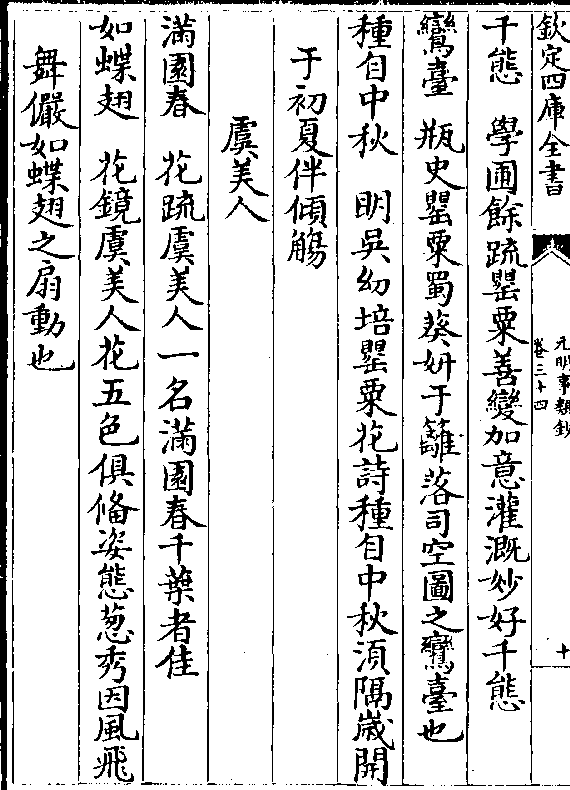 欽定四庫全書
元明事類鈔
卷三十四
十
千態　學圃餘疏罌粟善變加意灌溉妙好千態
鸞臺　瓶史罌粟蜀葵妍于籬落司空圖之鸞臺也
種自中秋　明吳幼培罌粟花詩種自中秋須隔嵗開
于初夏伴傾觴
虞美人
滿園春　花疏虞美人一名滿園春千葉者佳
如蝶翅　花鏡虞美人花五色俱備姿態葱秀因風飛
舞儼如蝶翅之扇動也